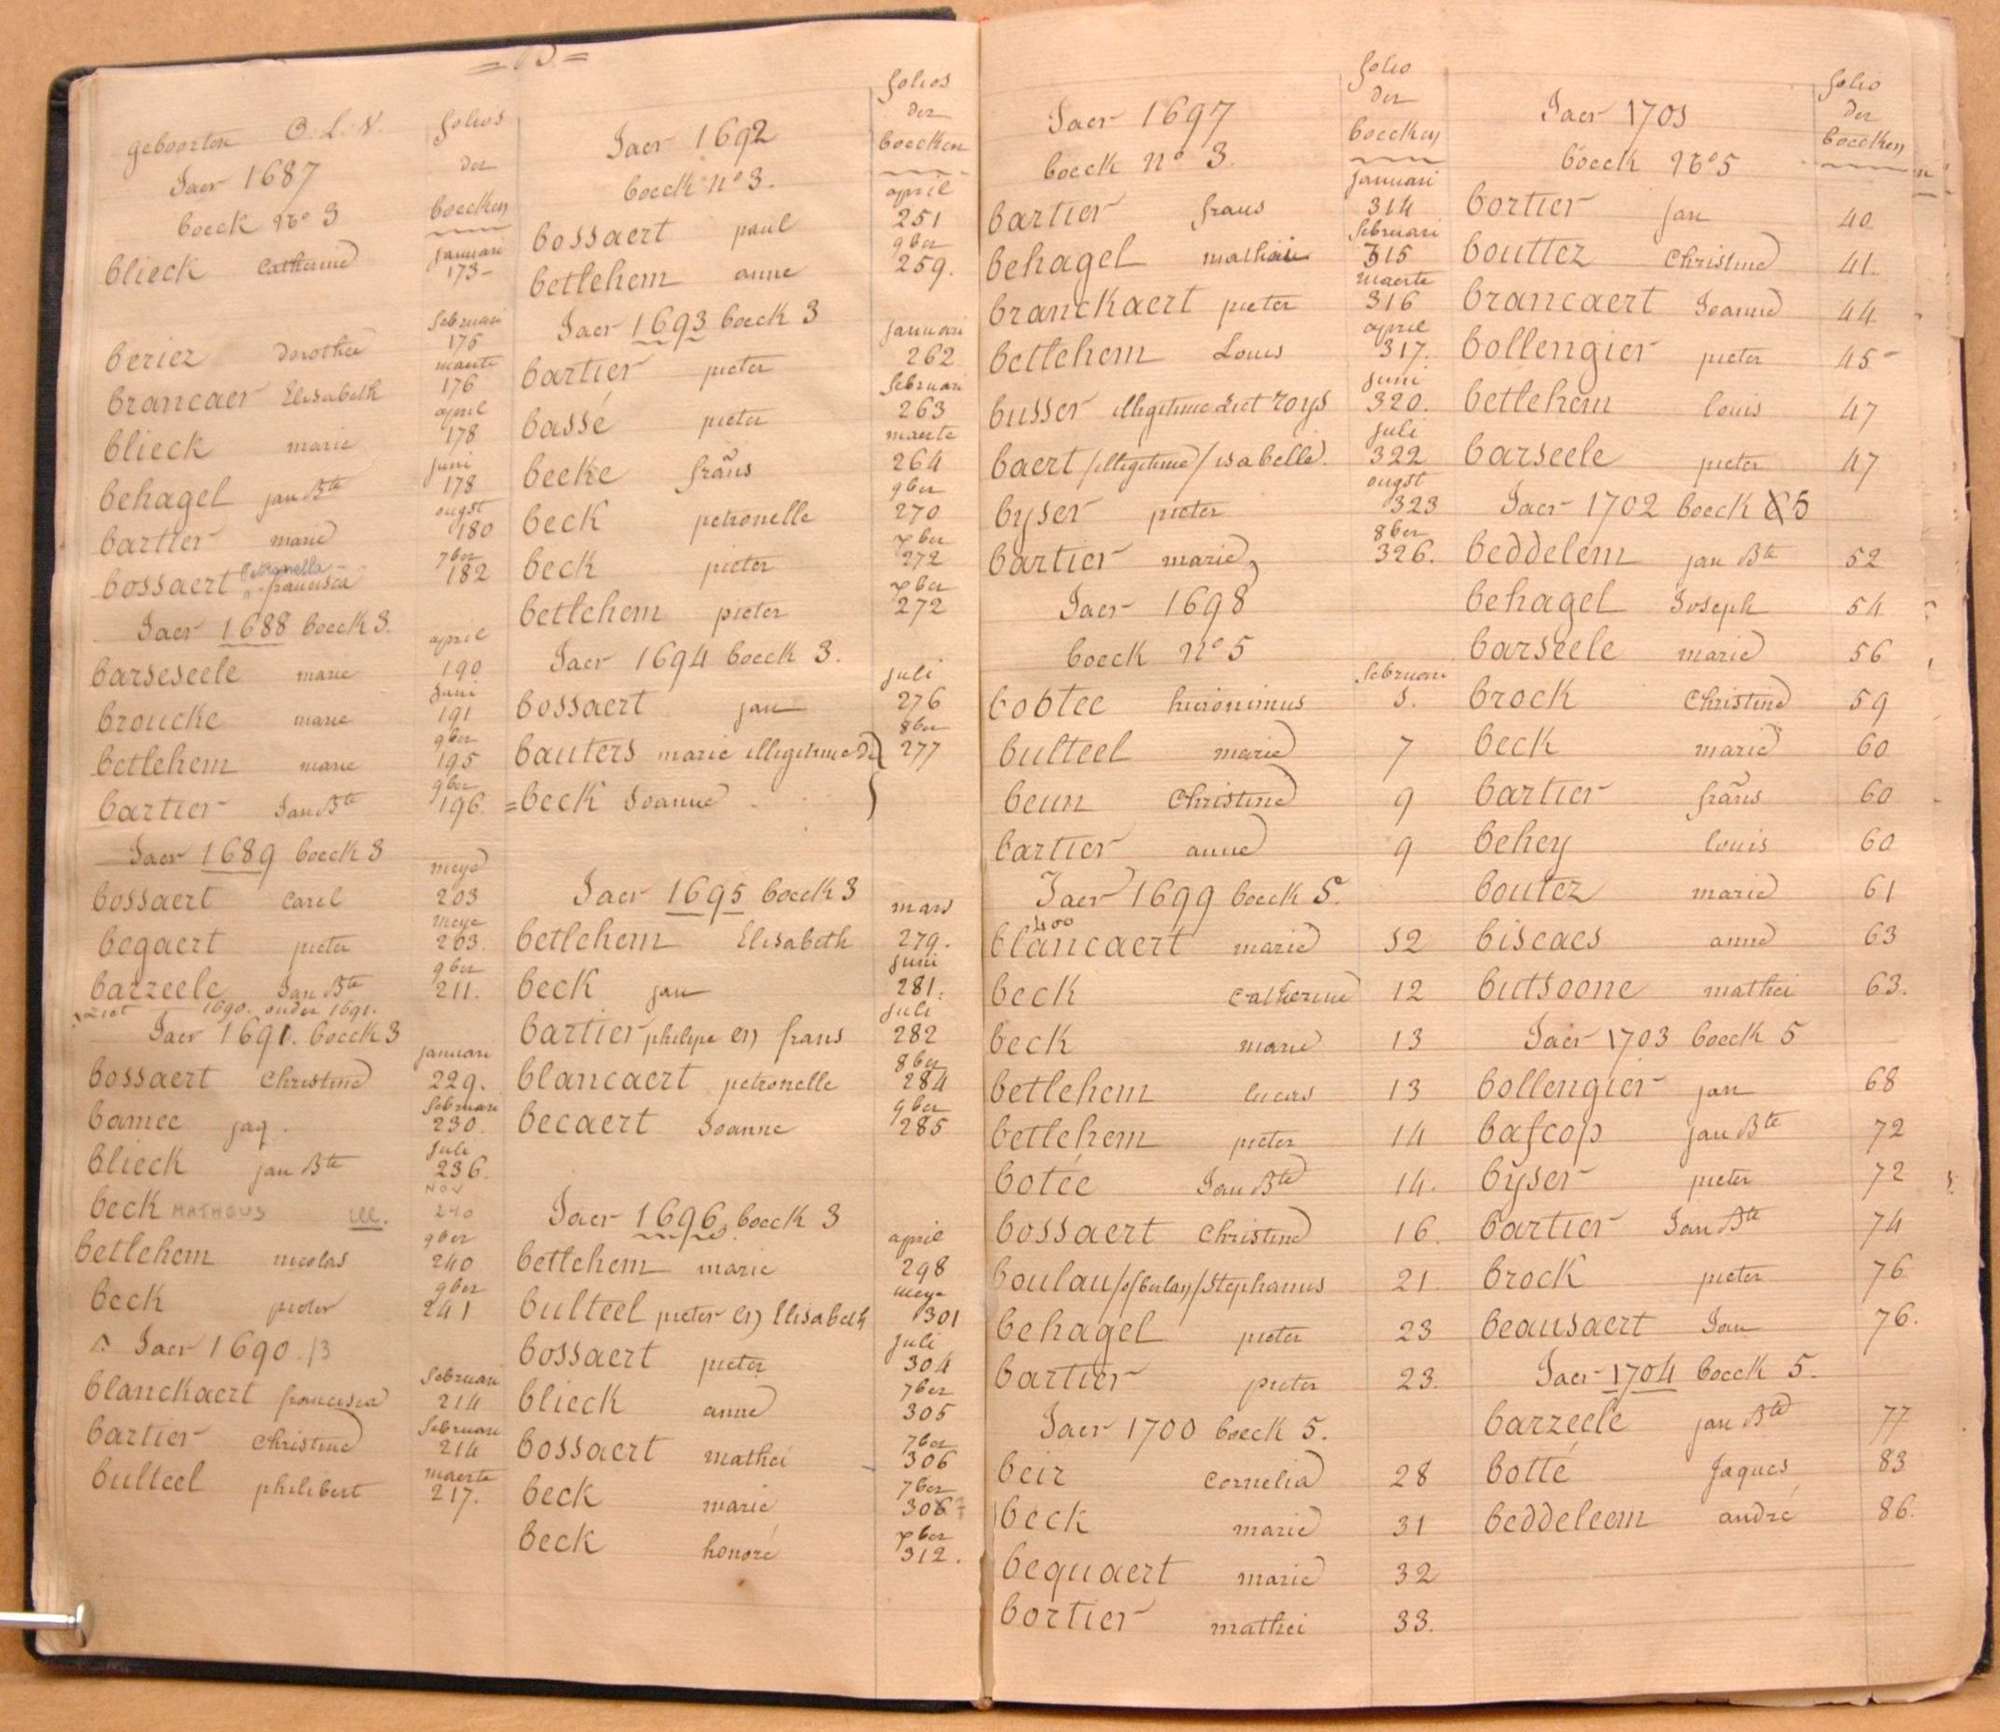 = B =
geboorten O. L. V. folios
Jaer 1687 der
boeck No 3 boecken
januari
blieck Catherine 173-
februari
beriez dorothee 175
maerte
brancaer Elisabeth 176
april
blieck marie 178
juni
behagel jan Bte 178
ougst
bartier marie 180
petronella
7ber
bossaert francisca 182
Jaer 1688 boeck 3.
april
barseseele marie 190
juni
broucke marie 191
9ber
betlehem marie 195
9ber
bartier Jan Bte 196.
Jaer 1689 boeck 3
meye
bossaert Carel 203
meye
begaert pieter 263.
9ber
barzeele Jan Bte 211.
ziet 1690. onder 1691.
Jaer 1691. boeck 3
januari
bossaert Christine 229.
februari
bamee jaq. 230.
juli
blieck jan Bte 236.
NOV
beck MATHEUS ill. 240
9ber
betlehem nicolas 240
9ber
beck pieter 241
Jaer 1690./3
februari
blanckaert francisca 214
februari
bartier Christine 214
maerte
bulteel philibert 217.
folios
der
Jaer 1692 boecken
boeck no 3. april
bossaert paul 251
9ber
betlehem anne 259.
Jaer 1693 boeck 3
januari
bartier pieter 262
februari
bassé pieter 263
maerte
beeke frãns 264
9ber
beck petronelle 270
xber
beck pieter 272
xber
betlehem pieter 272
Jaer 1694 boeck 3.
juli
bossaert jan 276
8ber
bauters marie illegitime de } 277
=beck Joanne }
Jaer 1695 boeck 3
mars
betlehem Elisabeth 279.
juni
beck jan 281.
juli
bartier philipe en frans 282
8ber
blancaert petronelle 284
9ber
becaert Joanne 285
Jaer 1696 boeck 3
april
betlehem marie 298
meye
bulteel pieter en Elisabeth 301
juli
bossaert pieter 304
7ber
blieck anne 305
7ber
bossaert mathei 306
7ber
beck marie 306
xber
beck honoré 312.
folio
der
Jaer 1697 boecken
boeck no 3. januari
bartier frans 314
februari
behagel mathei 315
maerte
branckaert pieter 316
april
betlehem Louis 317.
juni
busser illegitime dict roys 320.
juli
baert /illegitime/ isabelle. 322
ougst
byser pieter 323
8ber
bartier marie 326.
Jaer 1698
boeck no 5
februari
bobtee hieronimus 5.
bulteel marie 7
beun Christine 9
bartier anne 9
Jaer 1699 boeck 5.
blancaert marie 12
beck Catherine 12
beck marie 13
betlehem lucas 13
betlehem pieter 14
botée Jan Bte 14.
bossaert Christine 16.
boulau /of burlay/ Stephanus 21.
behagel pieter 23
bartier pieter 23.
Jaer 1700 boeck 5.
beir Cornelia 28
beck marie 31
bequaert marie 32
bortier mathei 33.
folio
der
Jaer 1701 boecken
boeck No 5
bortier jan 40
bouttez Christine 41.
brancaert Joanne 44
bollengier pieter 45-
betlehem louis 47
barseele pieter 47
Jaer 1702 boeck 5
beddelem jan Bte 52
behagel Joseph 54
barseele marie 56
brock Christine 59
beck marie 60
bartier frãns 60
behey louis 60
boutez marie 61
biscaes anne 63
butsoone mathei 63.
Jaer 1703 boeck 5
bollengier jan 68
bafcop jan Bte 72
byser pieter 72
bartier Jan Bte 74
brock pieter 76
beausaert Jan 76.
Jaer 1704 boeck 5.
barzeele jan Bte 77
botté Jaques 83
beddeleem andré 86.